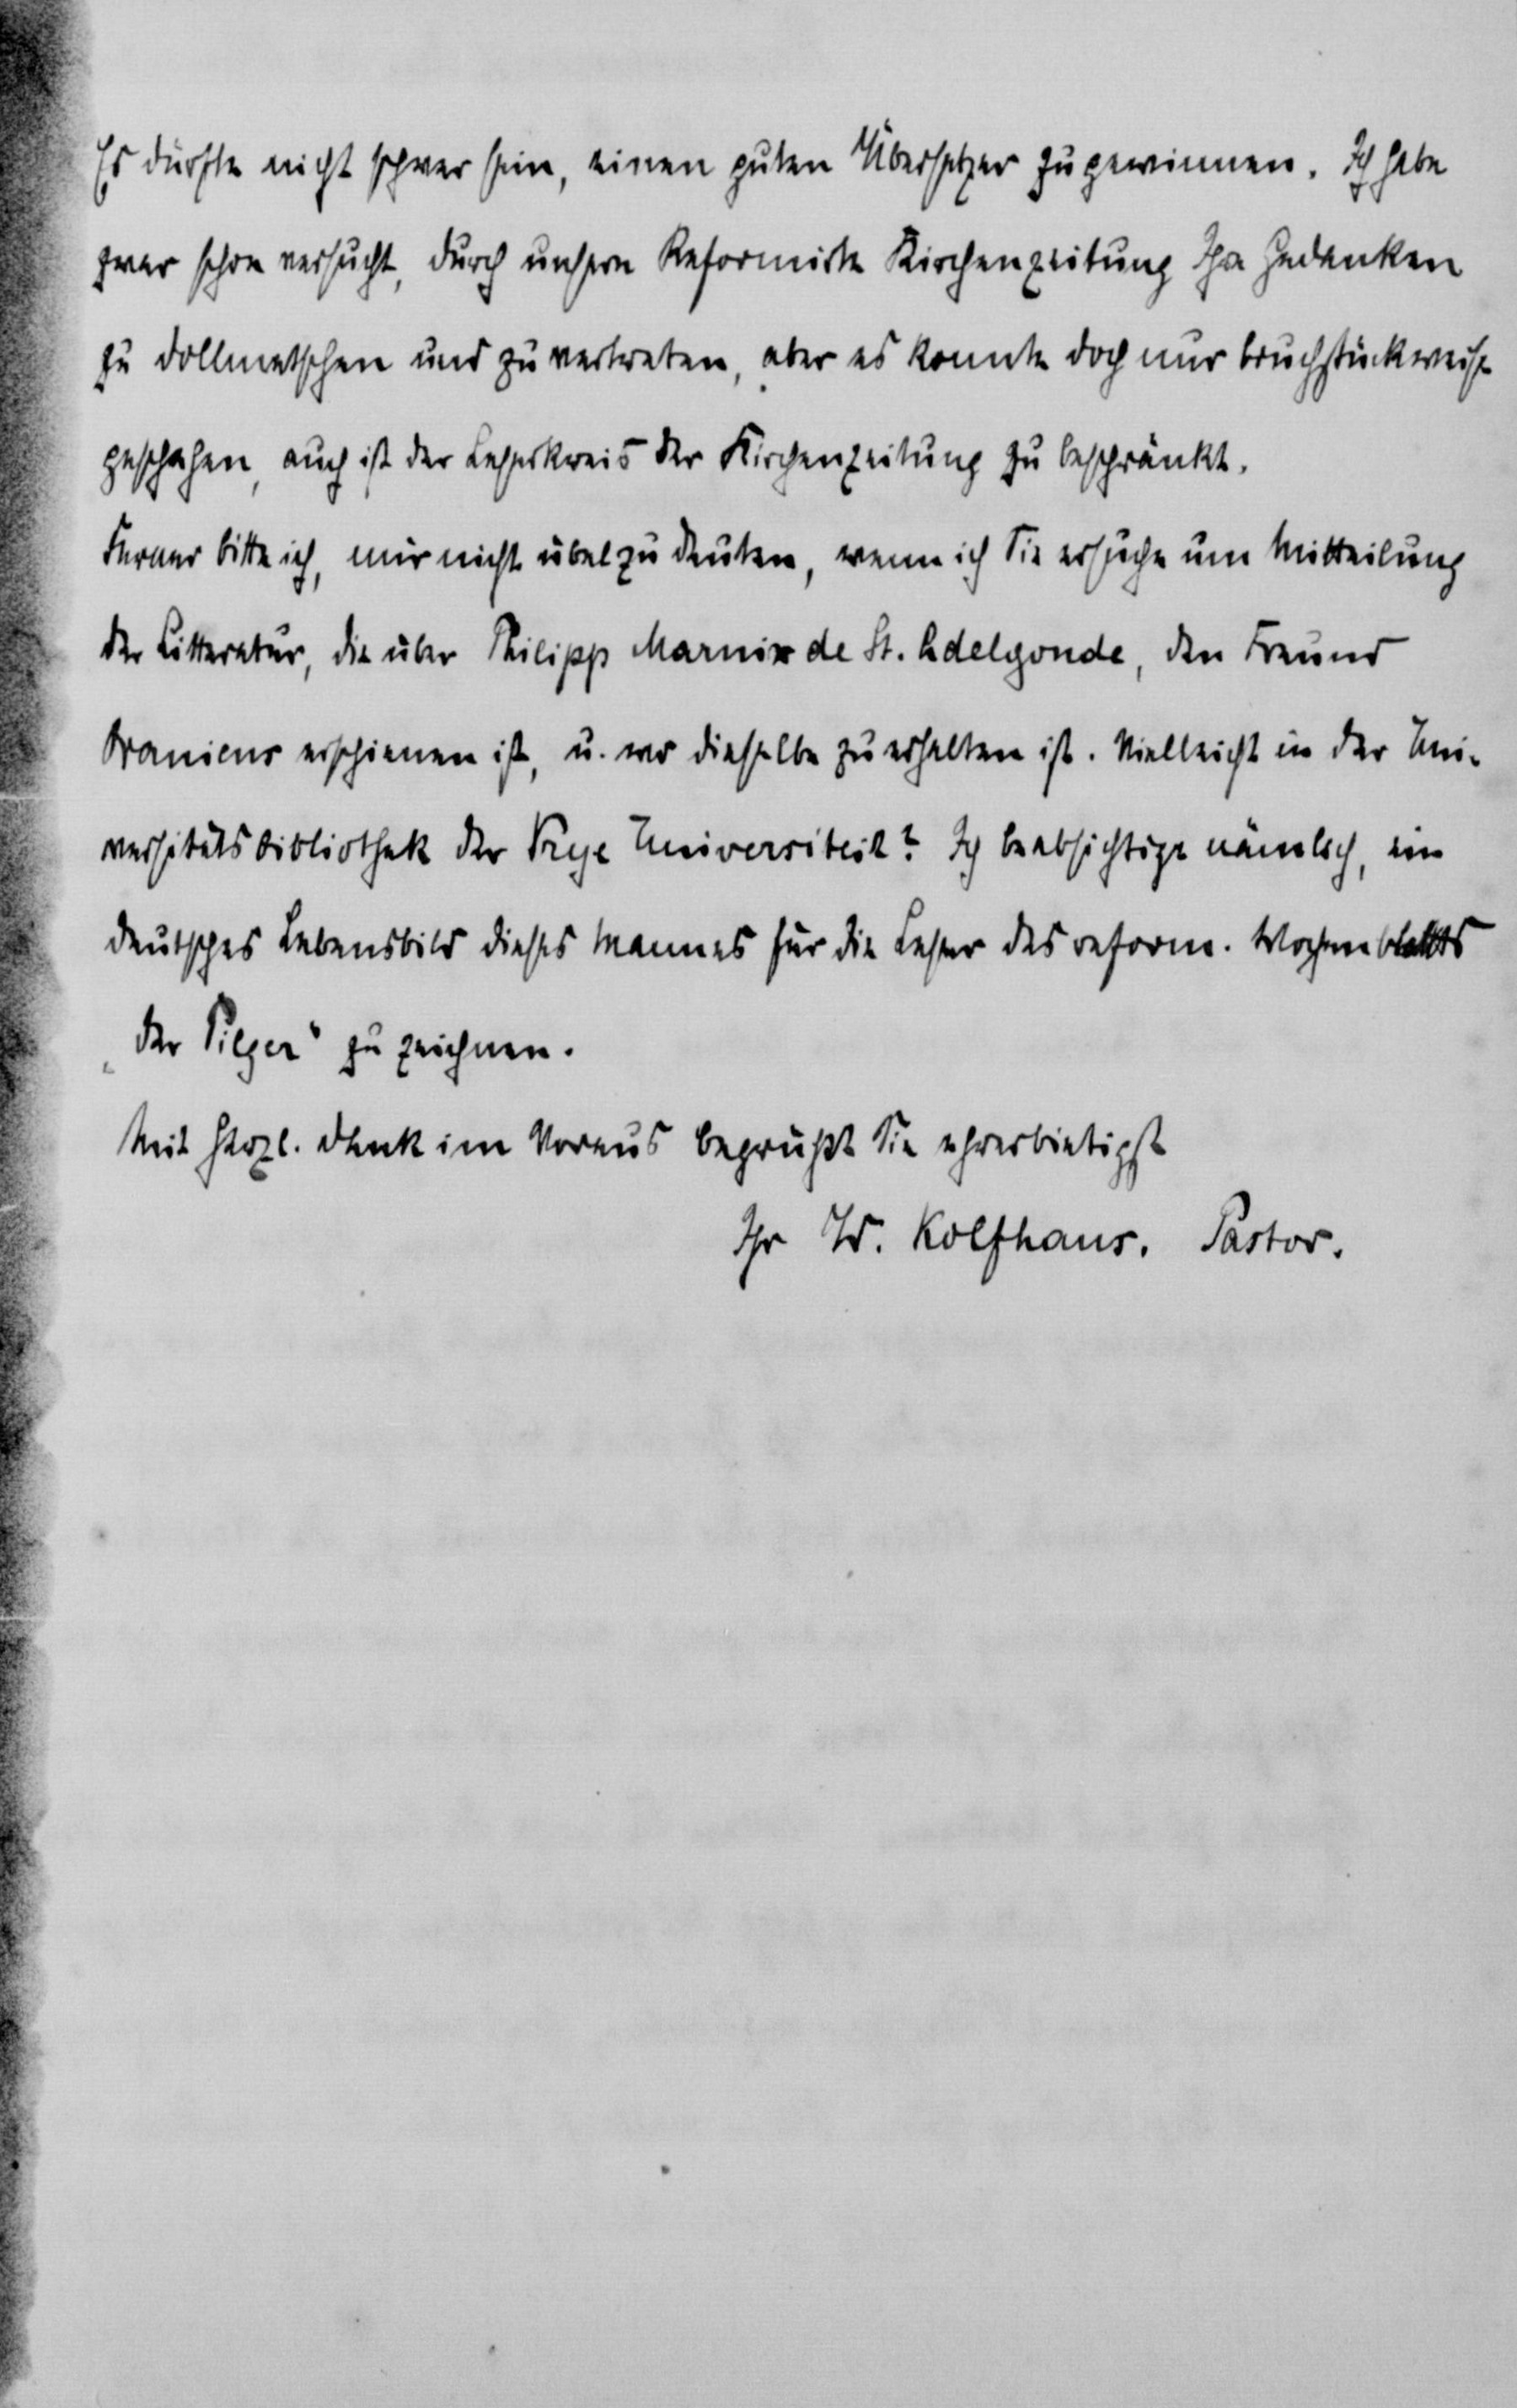 Es dürfte nicht schwer sein, einen guten Übersetzer zu gewinnen. Ich habe
zwar schon versucht, durch unsere Reformirte Kirchenzeitung Ihre Gedanken
zu dollmetschen und zu vertreten, aber es konnte doch nur bruchstückweise
geschehen, auch ist der Leserkreis der Kirchenzeitung zu beschränkt.
Ferner bitte ich, mir nicht übel zu deuten, wenn ich Sie ersuche um Mitteilung
der Litteratur, die über Philipp Marnix de St. Adelgonde, den Freund
Oraniens erschienen ist, u. wo dieselbe zu erhalten ist. Vielleicht in der Uni-
versitätsbibliothek der Vrye Universiteit? Ich beabsichtige nämlich, ein
deutsches Lebensbild dieses Mannes für die Leser des reform. Wochenblatts
„der Pilger“ zu zeichnen.
Mit herzl. Dank im Voraus begrüßt Sie ehrerbietigst
Ihr W. Kolfhaus. Pastor.